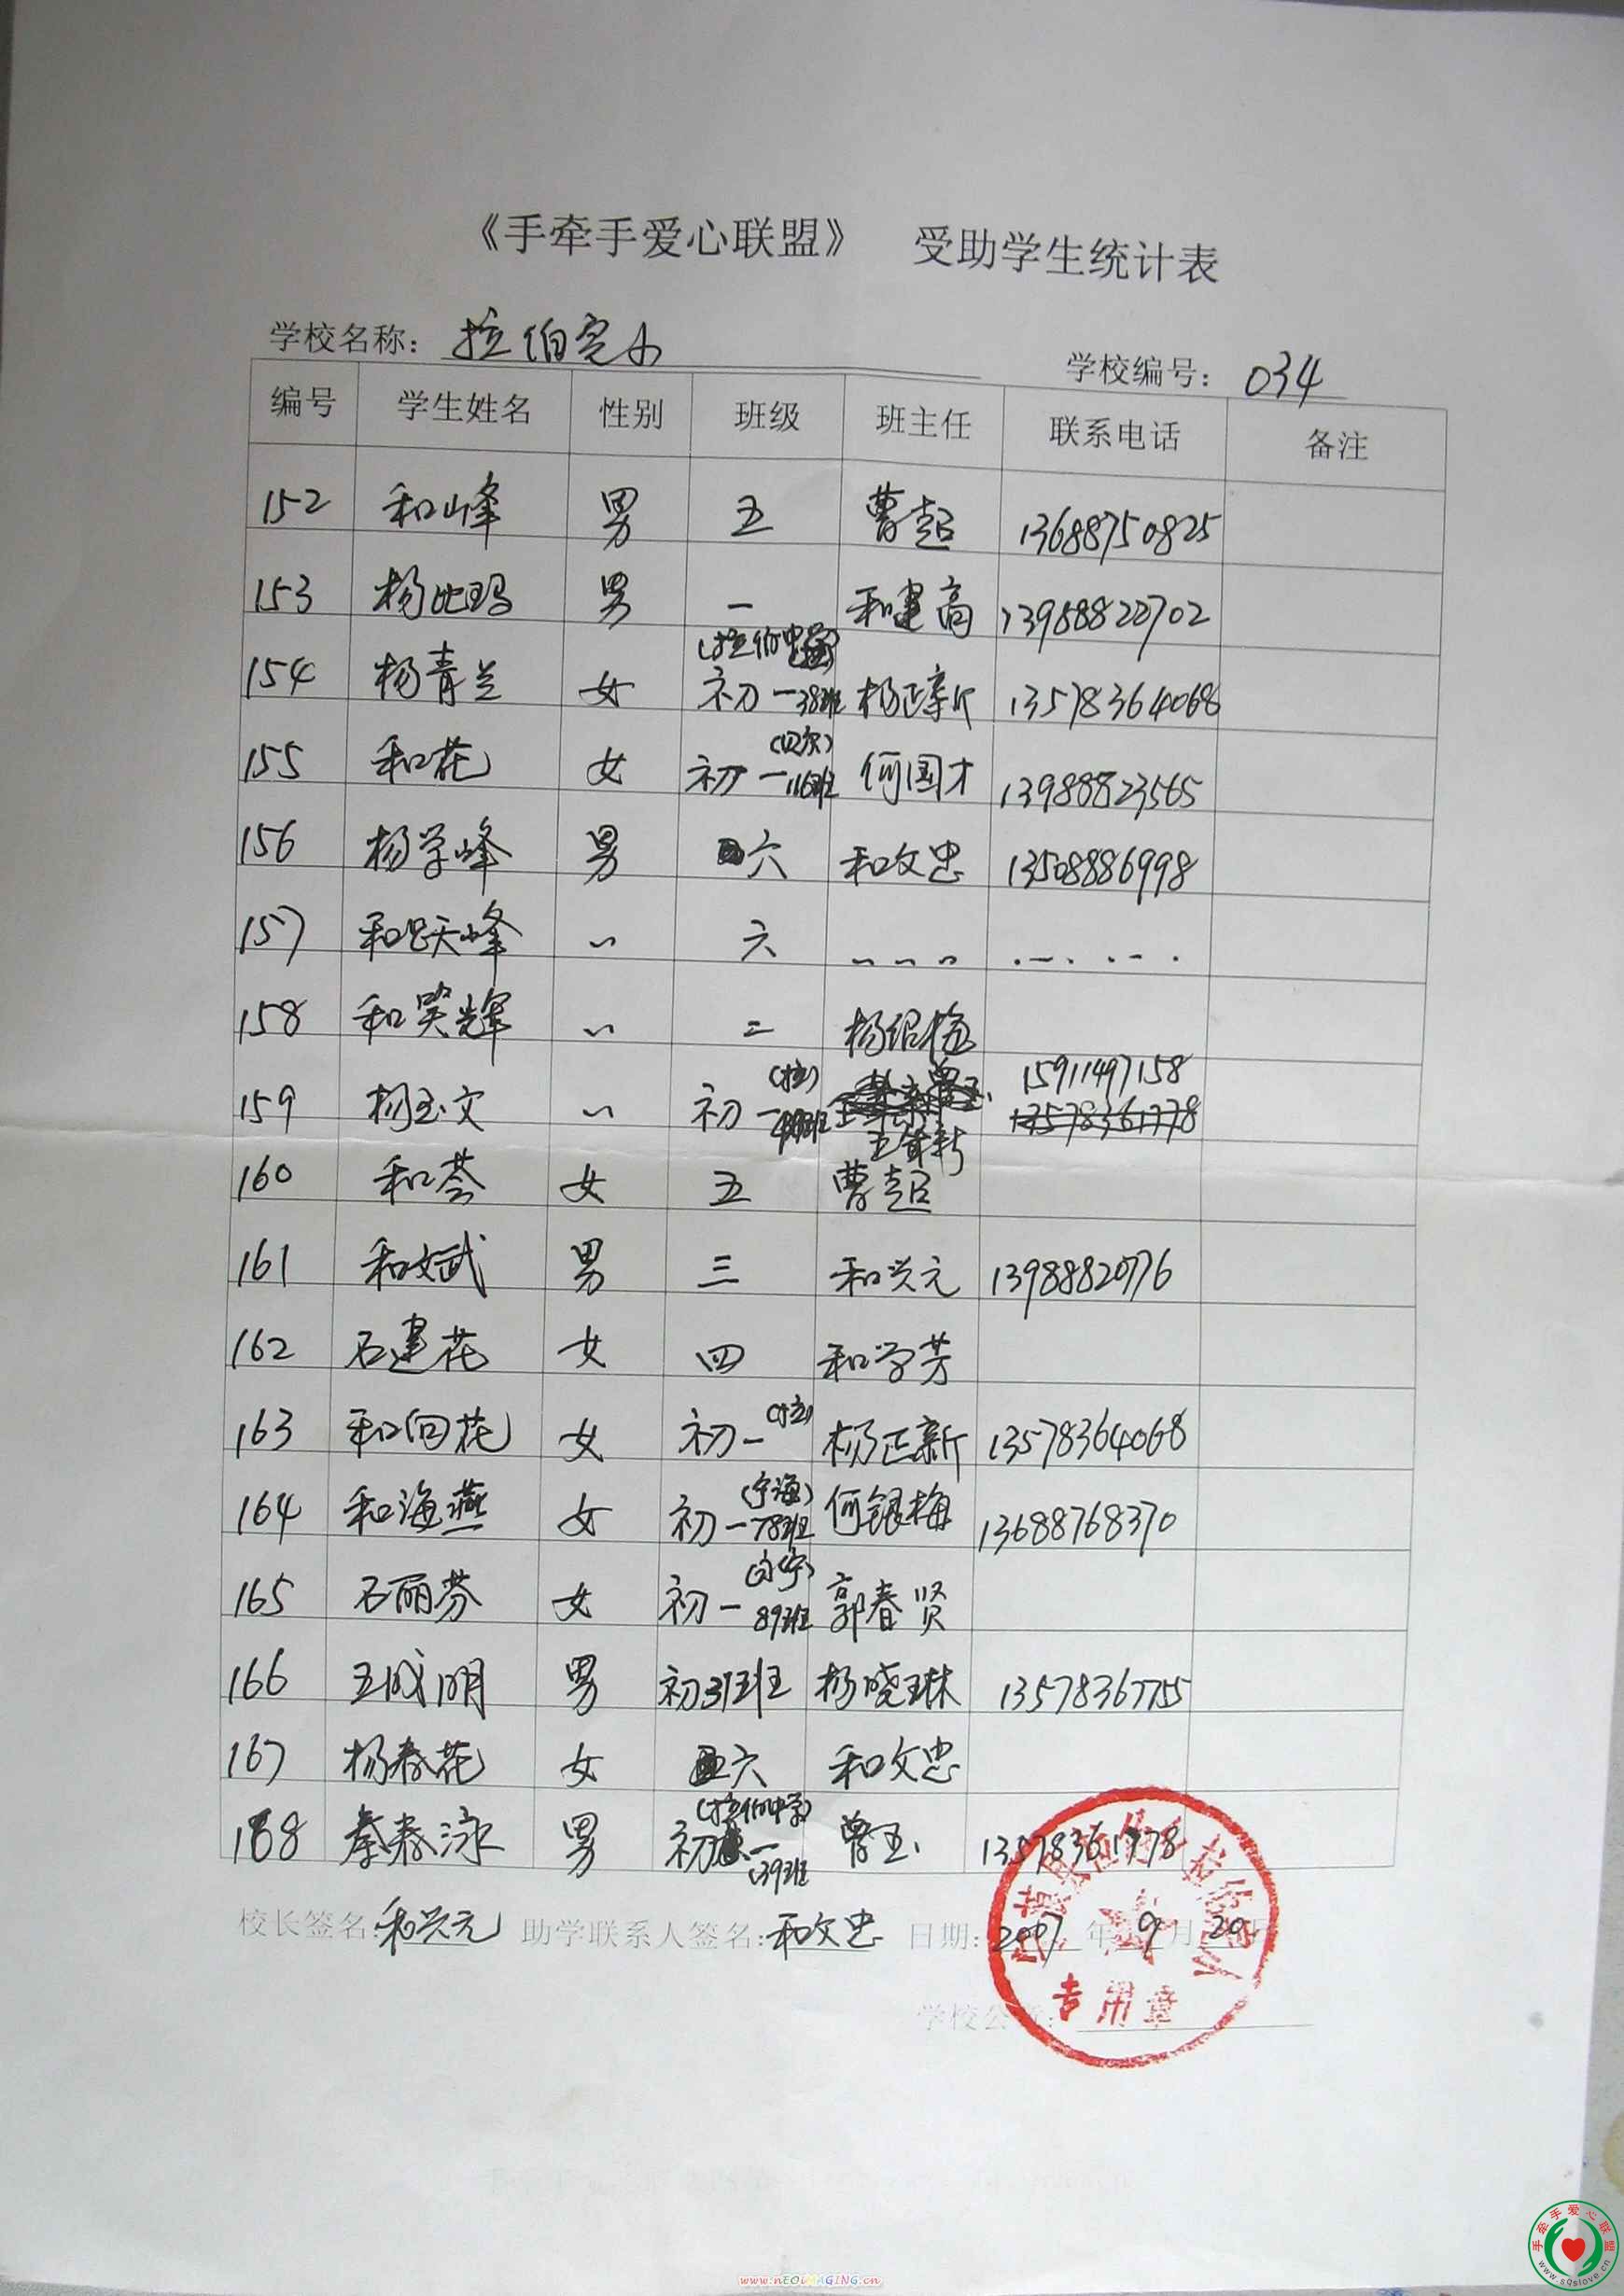 《手牵手爱心联盟》 受助学生统计表
学校名称: 拉伯完小 学校编号: 034
编号 学生姓名 性别 班级 班主任 联系电话 备注
152 和峰 男 五 曹超 13688750825
153 杨比玛 男 一 和建高 13988822702
(拉伯中学)
154 杨青兰 女 初一38班 杨正新 13578364068
155 和花 女 初一116班 何国才 13988823565
156 杨学峰 男 六 和文忠 13508886998
157 和跃峰 〃 六 〃 〃 〃
158 和笑辉 〃 二 杨绍梅
(拉) 15911497158
159 杨玉文 〃 初一 13578361778
160 和荟 女 五 曹超
161 和文武 男 三 和兴元 13988820776
162 石建花 女 四 和学芳
163 和向花 女 初一(拉) 杨正新 13578364068
(宁海)
164 和海燕 女 初一78班 何银梅 13688768370
(永宁)
165 石丽芬 女 初一89班 郭春贤
166 王成明 男 初31班 杨晓琳 13578367755
167 杨春花 女 六 和文忠
(拉伯中学)
168 秦春泳 男 初一39班 曾玉 13578361778
校长签名: 和兴元 助学联系人签名: 和文忠 日期: 2007年9月20
学校公章:
专用章
手牵手爱心联盟
www.sqslove.cn
www.nEOiMAGING.cn